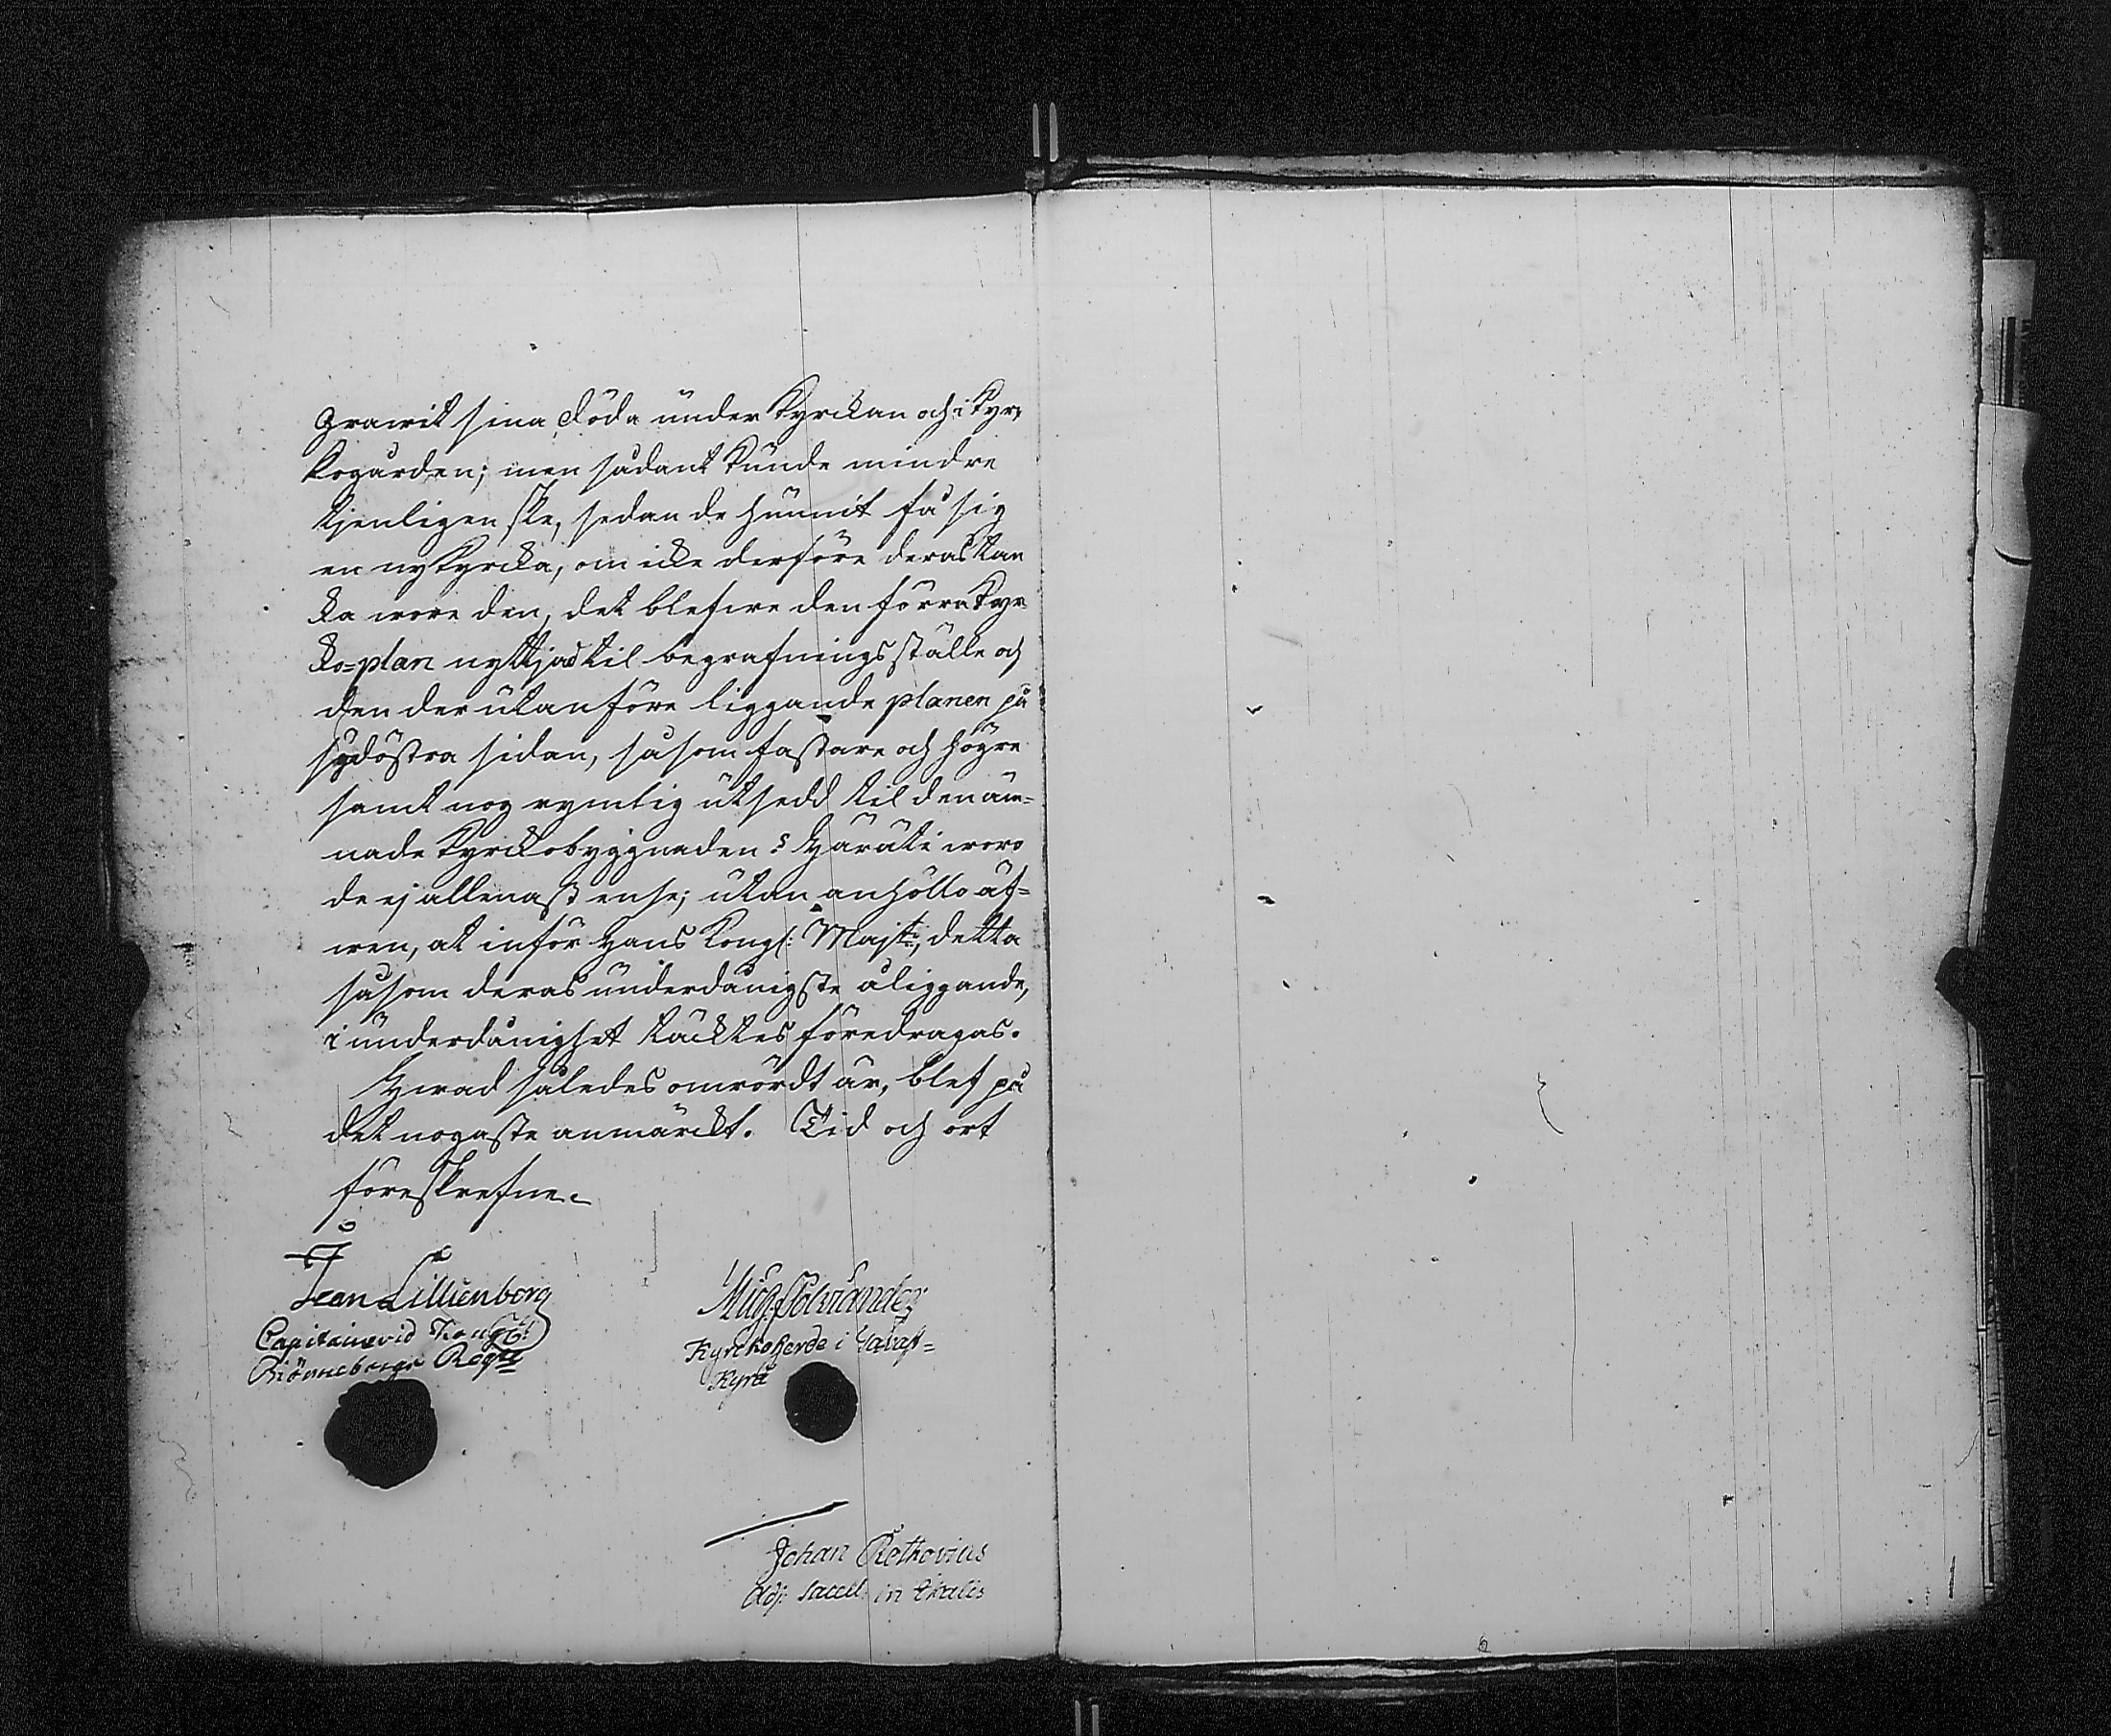 grawit sina döda under Kyrckan och i Kyr-
kogården; men sådant kunde mindre
tjenligen ske, sedan de hunnit få sig
en ny Kyrcka, om icke derföre deras tan
ka wore den, det blefwe den förra Kyr-
ko=plan nyttjad til begrafnings ställe och
den der utanföre liggande planen på
sydöstra sidan, såsom fastare och högre
samt nog rymlig utsedd til den äm=
nade Kyrckobyggnaden? Häruti woro
de ej allenast ense; utan anhöllo äf=
wen, at inför Hans Kongl: Majt:, detta
såsom deras underdånigste åliggande,
i underdånighet täcktes föredragas.
Hwad således omrördt är, blef på
det nogaste anmärckt. Tid och ort
föreskrefne.
Jean Lillienberg
Capitaine vid Kongl:
Biörneborgs Regte
Kyrckoherde i Tavast=
Kyrö
Johan Rothovius
Adj: Sacell: in Ikalis